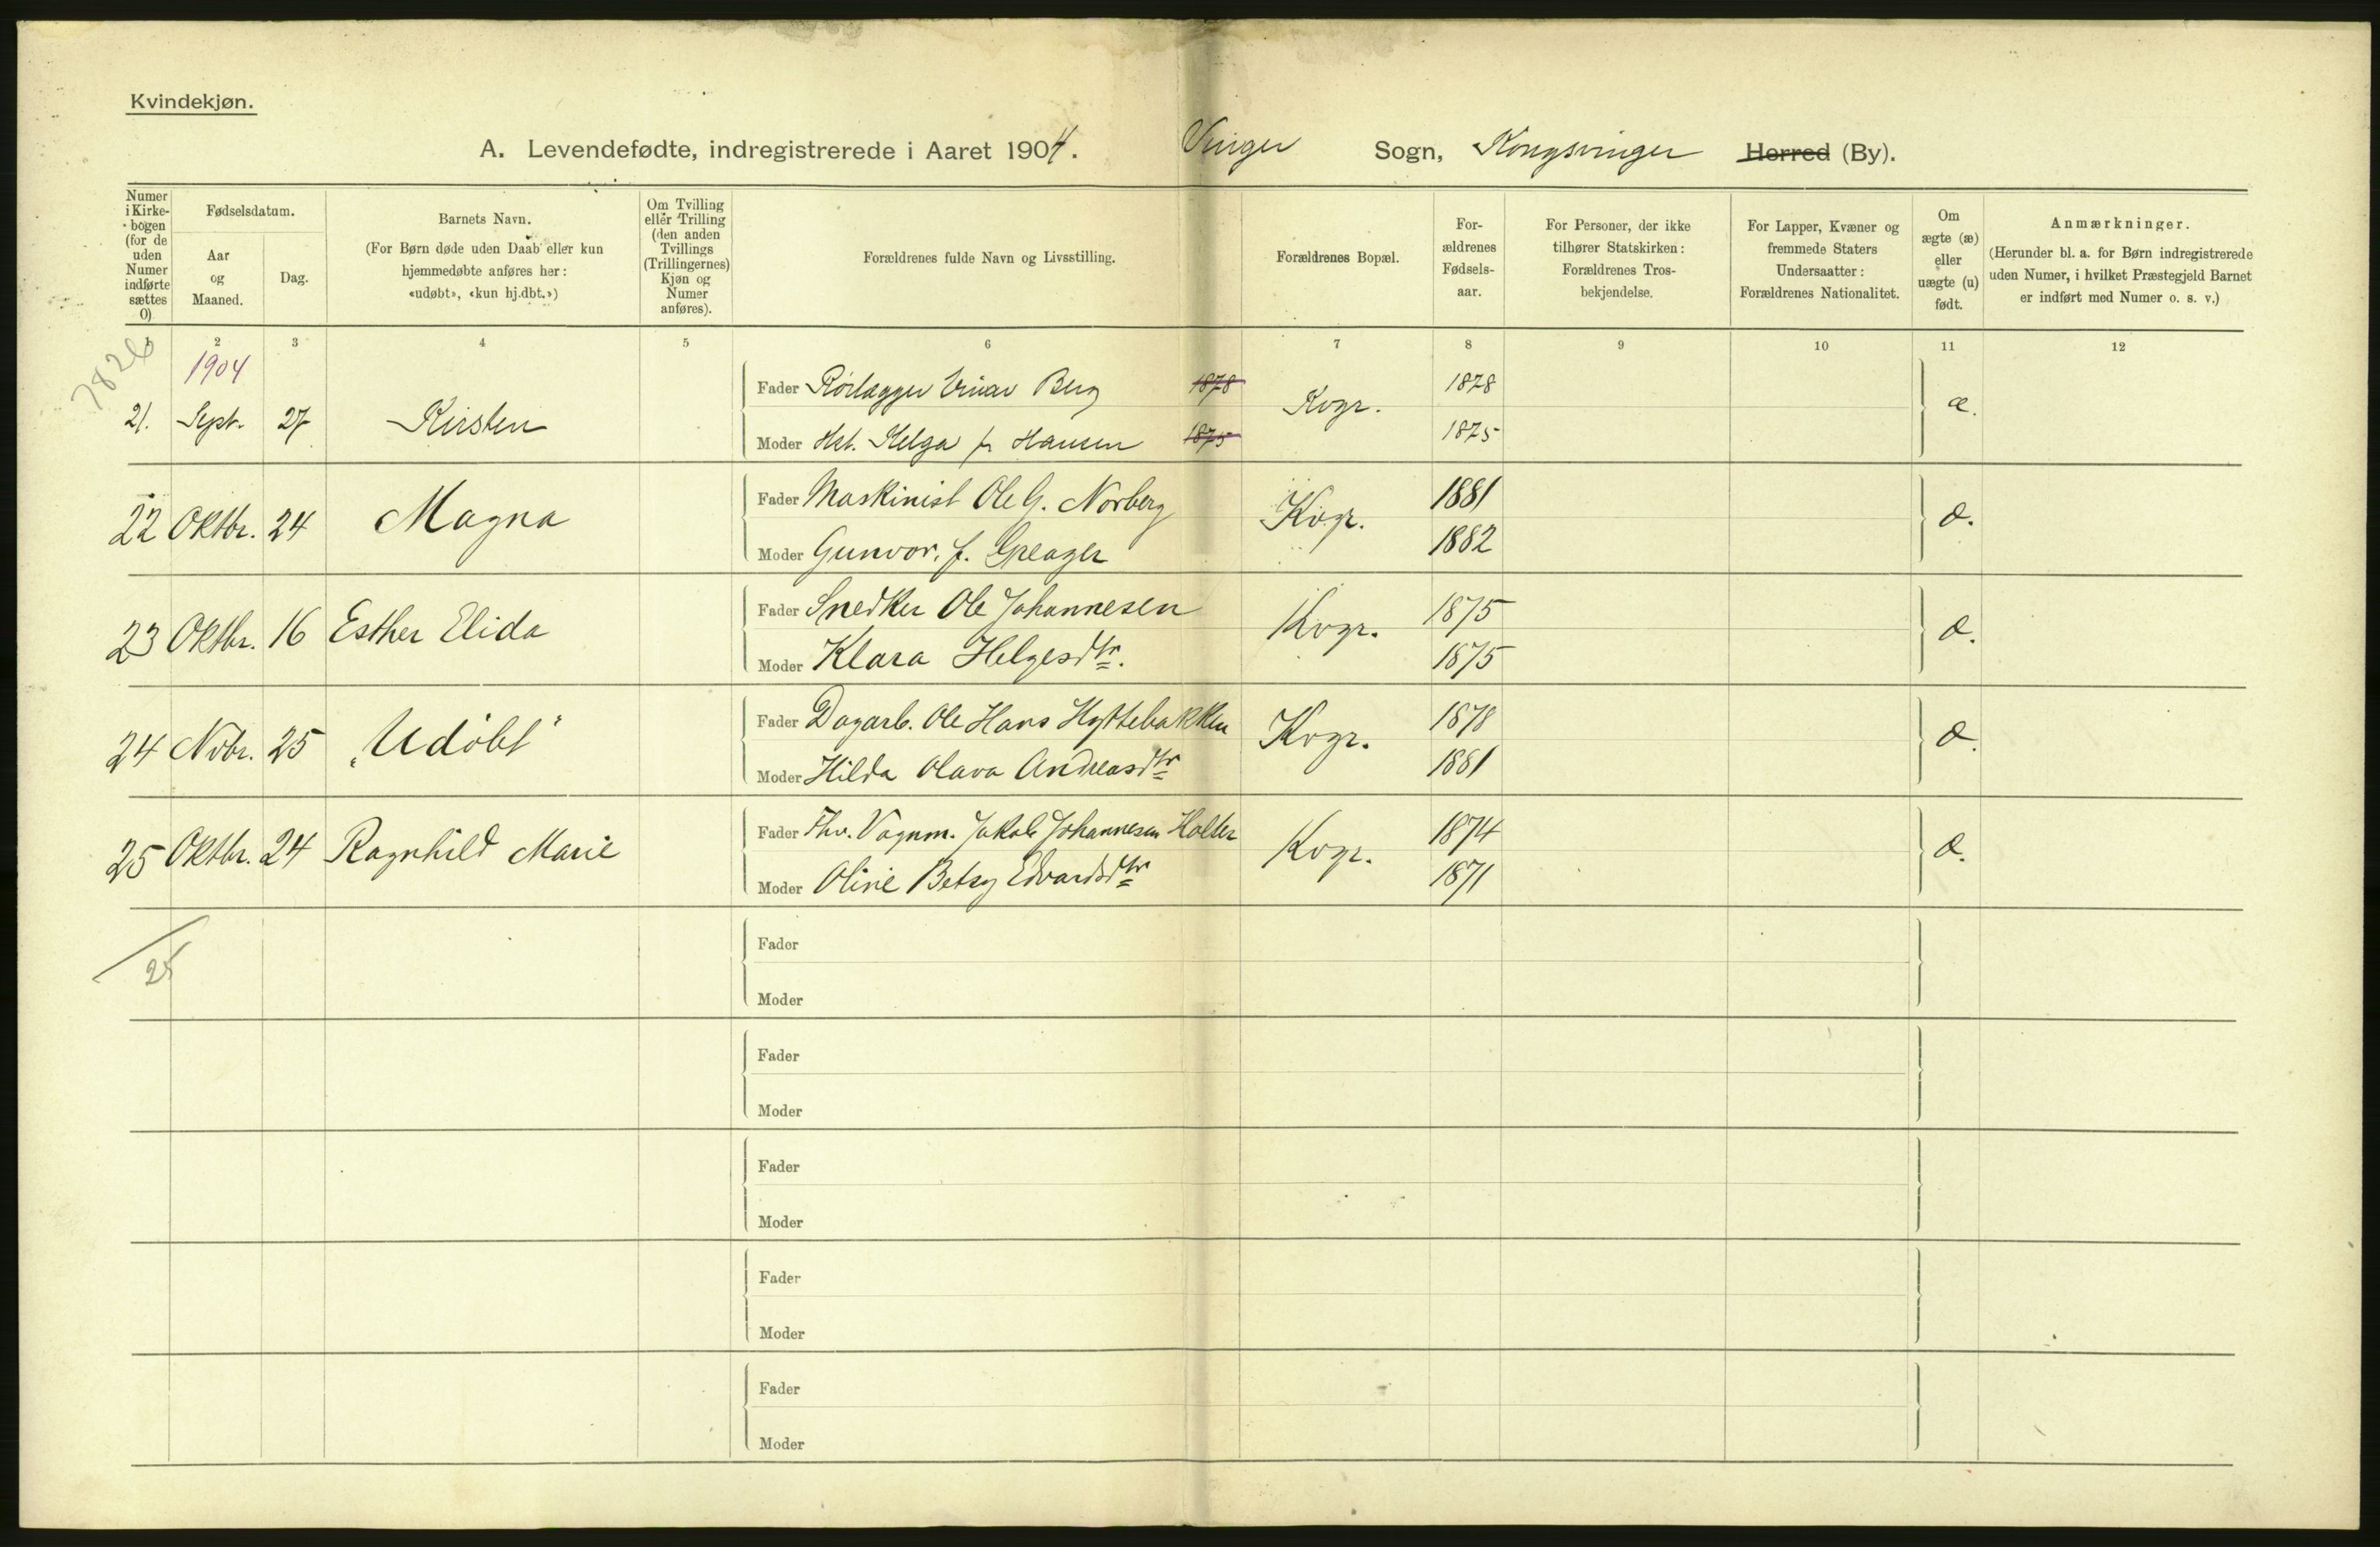 Kvindekjøn.
A. Levendefødte, indregistrerede i Aaret 1904. Vinger Sogn, Kongsvinger Herred (By).
Numer i Kirke-bogen (for de uden Numer indførte sættes 0)
Fødselsdatum.
Aar og Maaned.
Dag.
Barnets Navn.
(For Børn døde uden Daab eller kun
hjemmedøbte anføres her:
«udøbt», «kun hj.dbt.»)
Om Tvilling
eller Trilling
(den anden
Tvillings
(Trillingernes)
Kjøn og
Numer
anføres).
Forældrenes fulde Navn og Livsstilling.
Forældrenes Bopæl.
For-
ældrenes
Fødsels-
aar.
For Personer, der ikke
tilhører Statskirken:
Forældrenes Tros-
bekjendelse.
For Lapper, Kvæner og
fremmede Staters
Undersaatter:
Forældrenes Nationalitet.
Om
ægte (æ)
eller
uægte (u)
født.
Anmærkninger.
(Herunder bl. a. for Børn indregistrerede
uden Numer, i hvilket Præstegjeld Barnet
er indført med Numer o. s. v.)
1 2 3 4 5 6 7 8 9 10 11 12
1904
21. Sept. 27 Kirsten Fader Rørlægger Einar Berg 1878 Kvgr. 1878 æ.
Moder Hst. Helga f. Hansen 1875 1875
22 Oktbr. 24 Magna Fader Maskinist Ole G. Norberg Kvgr. 1881 æ.
Moder Gunvor, f. 1882
23 Oktbr. 16 Esther Elida Fader Snedker Ole Johannesen Kvgr. 1875 æ.
Moder Klara Helgesdtr. 1875
24 Nvbr. 25 „Udøbt" Fader Dagarb. Ole Hans Hyttebakken Kvgr. 1878 æ.
Moder Hilda Olava Andreasdtr 1881
25 Oktbr. 24 Ragnhild Marie Fader Fhv. Vognm. Jakob Johannesen Holter Kvgr. 1874 æ.
Moder Oline Betsy Edvardsdtr 1871
25
Fader
Moder
Fader
Moder
Fader
Moder
Fader
Moder
Fader
Moder